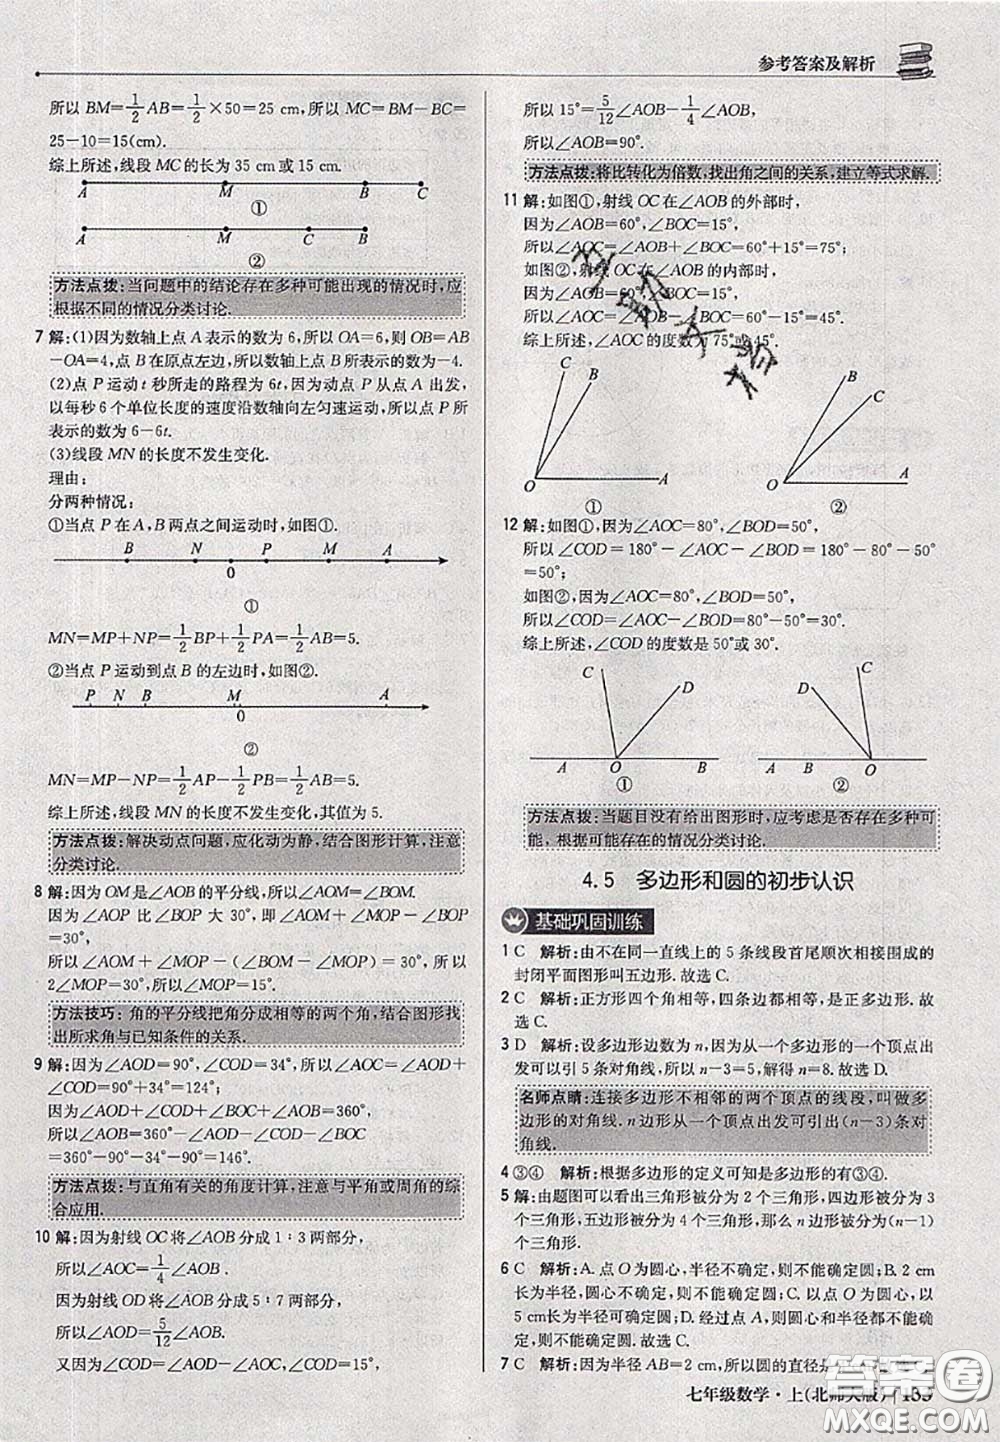 参考答案及解析
所以 BM=1/2AB=1/2×50=25 cm,所以 MC=BM−BC=
25−10=15(cm).
综上所述,线段 MC 的长为 35 cm 或 15 cm.
A M B C
①
A M C B
②
方法点拨:当问题中的结论存在多种可能出现的情况时,应
根据不同的情况分类讨论.
7 解:(1)因为数轴上点 A 表示的数为 6,所以 OA=6,则 OB=AB
−OA=4,点 B 在原点左边,所以数轴上点 B 所表示的数为−4.
(2)点 P 运动 t 秒所走的路程为 6t,因为动点 P 从点 A 出发,
以每秒 6 个单位长度的速度沿数轴向左匀速运动,所以点 P 所
表示的数为 6−6t.
(3)线段 MN 的长度不发生变化.
理由:
分两种情况:
①当点 P 在 A,B 两点之间运动时,如图①.
B N P M A
0
①
MN=MP+NP=1/2BP+1/2PA=1/2AB=5.
②当点 P 运动到点 B 的左边时,如图②.
P N B M A
0
②
MN=MP−NP=1/2AP−1/2PB=1/2AB=5.
综上所述,线段 MN 的长度不发生变化,其值为 5.
方法点拨:解决动点问题,应化动为静,结合图形计算,注意
分类讨论.
8 解:因为 OM 是∠AOB 的平分线,所以∠AOM=∠BOM.
因为∠AOP 比∠BOP 大 30°,即∠AOM+∠MOP−∠BOP
=30°,
所以∠AOM+∠MOP−(∠BOM−∠MOP)=30°,所以
2∠MOP=30°,所以∠MOP=15°.
方法技巧:角的平分线把角分成相等的两个角,结合图形找
出所求角与已知条件的关系.
9 解:因为∠AOD=90°,∠COD=34°,所以∠AOC=∠AOD+
∠COD=90°+34°=124°;
因为∠AOD+∠AOB+∠BOC+∠COD=360°,
所以∠AOB=360°−∠AOD−∠COD−∠BOC
=360°−90°−34°−90°=146°.
方法点拨:与直角有关的角度计算,注意与平角或周角的综
合应用.
10 解:因为射线 OC 将∠AOB 分成 1∶3 两部分,
所以∠AOC=1/4∠AOB.
因为射线 OD 将∠AOB 分成 5∶7 两部分,
所以∠AOD=5/12∠AOB.
又因为∠COD=∠AOD−∠AOC,∠COD=15°,
所以 15°=5/12∠AOB−1/4∠AOB,
所以∠AOB=90°.
方法点拨:将比转化为倍数,找出角之间的关系,建立等式求解.
11 解:如图①,射线 OC 在∠AOB 的外部时,
因为∠AOB=60°,∠BOC=15°,
所以∠AOC=∠AOB+∠BOC=60°+15°=75°;
如图②,射线 OC 在∠AOB 的内部时,
因为∠AOB=60°,∠BOC=15°,
所以∠AOC=∠AOB−∠BOC=60°−15°=45°.
综上所述,∠AOC 的度数为 75°或 45°.
C B O A
①
B C O A
②
12 解:如图①,因为∠AOC=80°,∠BOD=50°,
所以∠COD=180°−∠AOC−∠BOD=180°−80°−50°
=50°;
如图②,因为∠AOC=80°,∠BOD=50°,
所以∠COD=∠AOC−∠BOD=80°−50°=30°.
综上所述,∠COD 的度数是 50°或 30°.
C D A O B
①
D C A B O
②
方法点拨:当题目没有给出图形时,应考虑是否存在多种可
能,根据可能存在的情况分类讨论.
4.5 多边形和圆的初步认识
基础巩固训练
1 C 解析:由不在同一直线上的 5 条线段首尾顺次相接围成的
封闭平面图形叫五边形.故选 C.
2 C 解析:正方形四个角相等,四条边都相等,是正多边形.故
选 C.
3 D 解析:设多边形边数为 n,因为从一个多边形的一个顶点出
发可以引 5 条对角线,所以 n−3=5,解得 n=8.故选 D.
名师点睛:连接多边形不相邻的两个顶点的线段,叫做多
边形的对角线.n 边形从一个顶点出发可引出(n−3)条对
角线.
4 ③④ 解析:根据多边形的定义可知是多边形的有③④.
5 解:由题图可以看出三角形被分为 2 个三角形,四边形被分为 3
个三角形,五边形被分为 4 个三角形,那么 n 边形被分为(n−1)
个三角形.
6 C 解析:A.点 O 为圆心,半径不确定,则不能确定圆;B.2 cm
长为半径,圆心不确定,则不能确定圆;C.以点 O 为圆心,以
5 cm长为半径可确定圆;D.经过点 A,圆心和半径都不能确
定,则不能确定圆.故选 C.
7 C 解析:因为半径 AB=2 cm,所以圆的直径是
七年级数学·上(北师大版) 135
答案圈
MXQE.COM